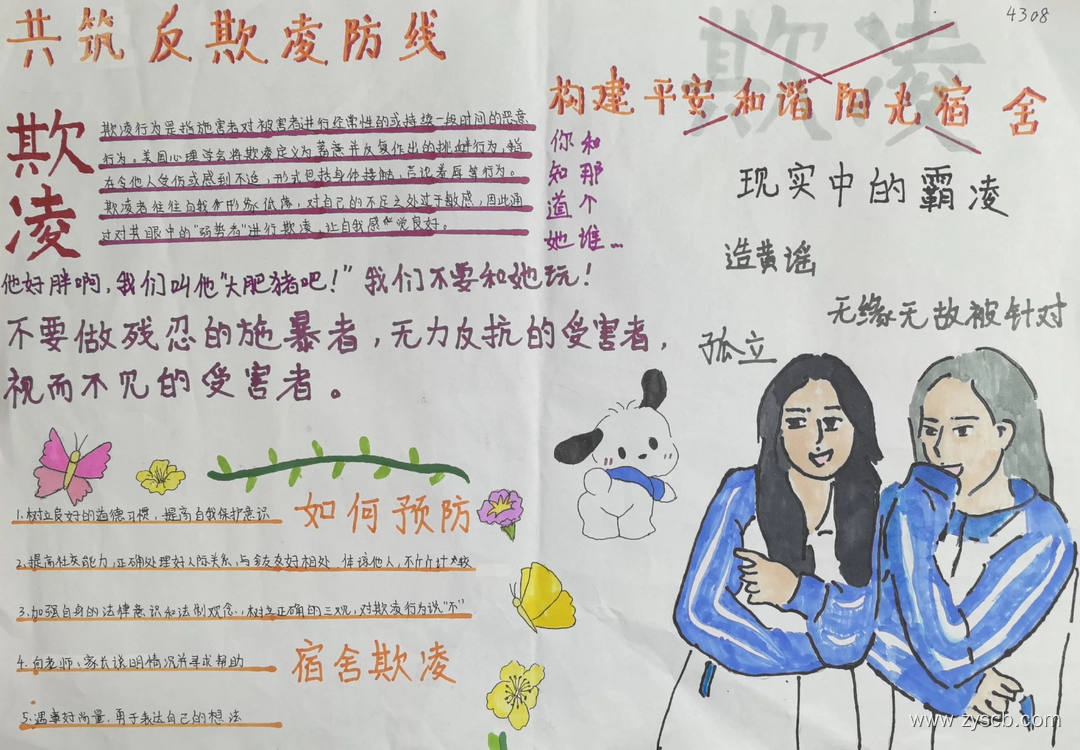 共筑反欺凌防线
4308
欺凌
构建平安和谐阳光宿舍
欺凌
欺凌行为是指施害者对被害者进行经常性的或持续一段时间的恶意
行为。美国心理学会将欺凌定义为蓄意并反复作出的挑衅行为，旨
在令他人受伤或感到不适，形式包括身体接触，言论羞辱等行为。
欺凌者往往自我形象低落，对自己的不足之处过于敏感，因此通
过对其眼中的“弱势者”进行欺凌，让自我感觉良好。
你和
知那
道个
她谁…
现实中的霸凌
造黄谣
无缘无故被针对
孤立
他好胖啊，我们叫他“大肥猪吧！”我们不要和她玩！
不要做残忍的施暴者，无力反抗的受害者，
视而不见的受害者。
如何预防
1.树立良好的道德习惯，提高自我保护意识
2.提高社交能力，正确处理好人际关系，与舍友友好相处 体谅他人，不斤斤计较
3.加强自身的法律意识和法制观念，树立正确的三观，对欺凌行为说“不”
4.向老师、家长说明情况并寻求帮助
宿舍欺凌
5.遇事好商量，勇于表达自己的想法
www.zyscb.com